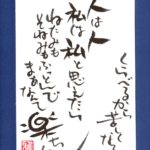 くらべるから苦しい
人は人
私は私と思えたら
ねたみも
そねみもふっとんで
楽